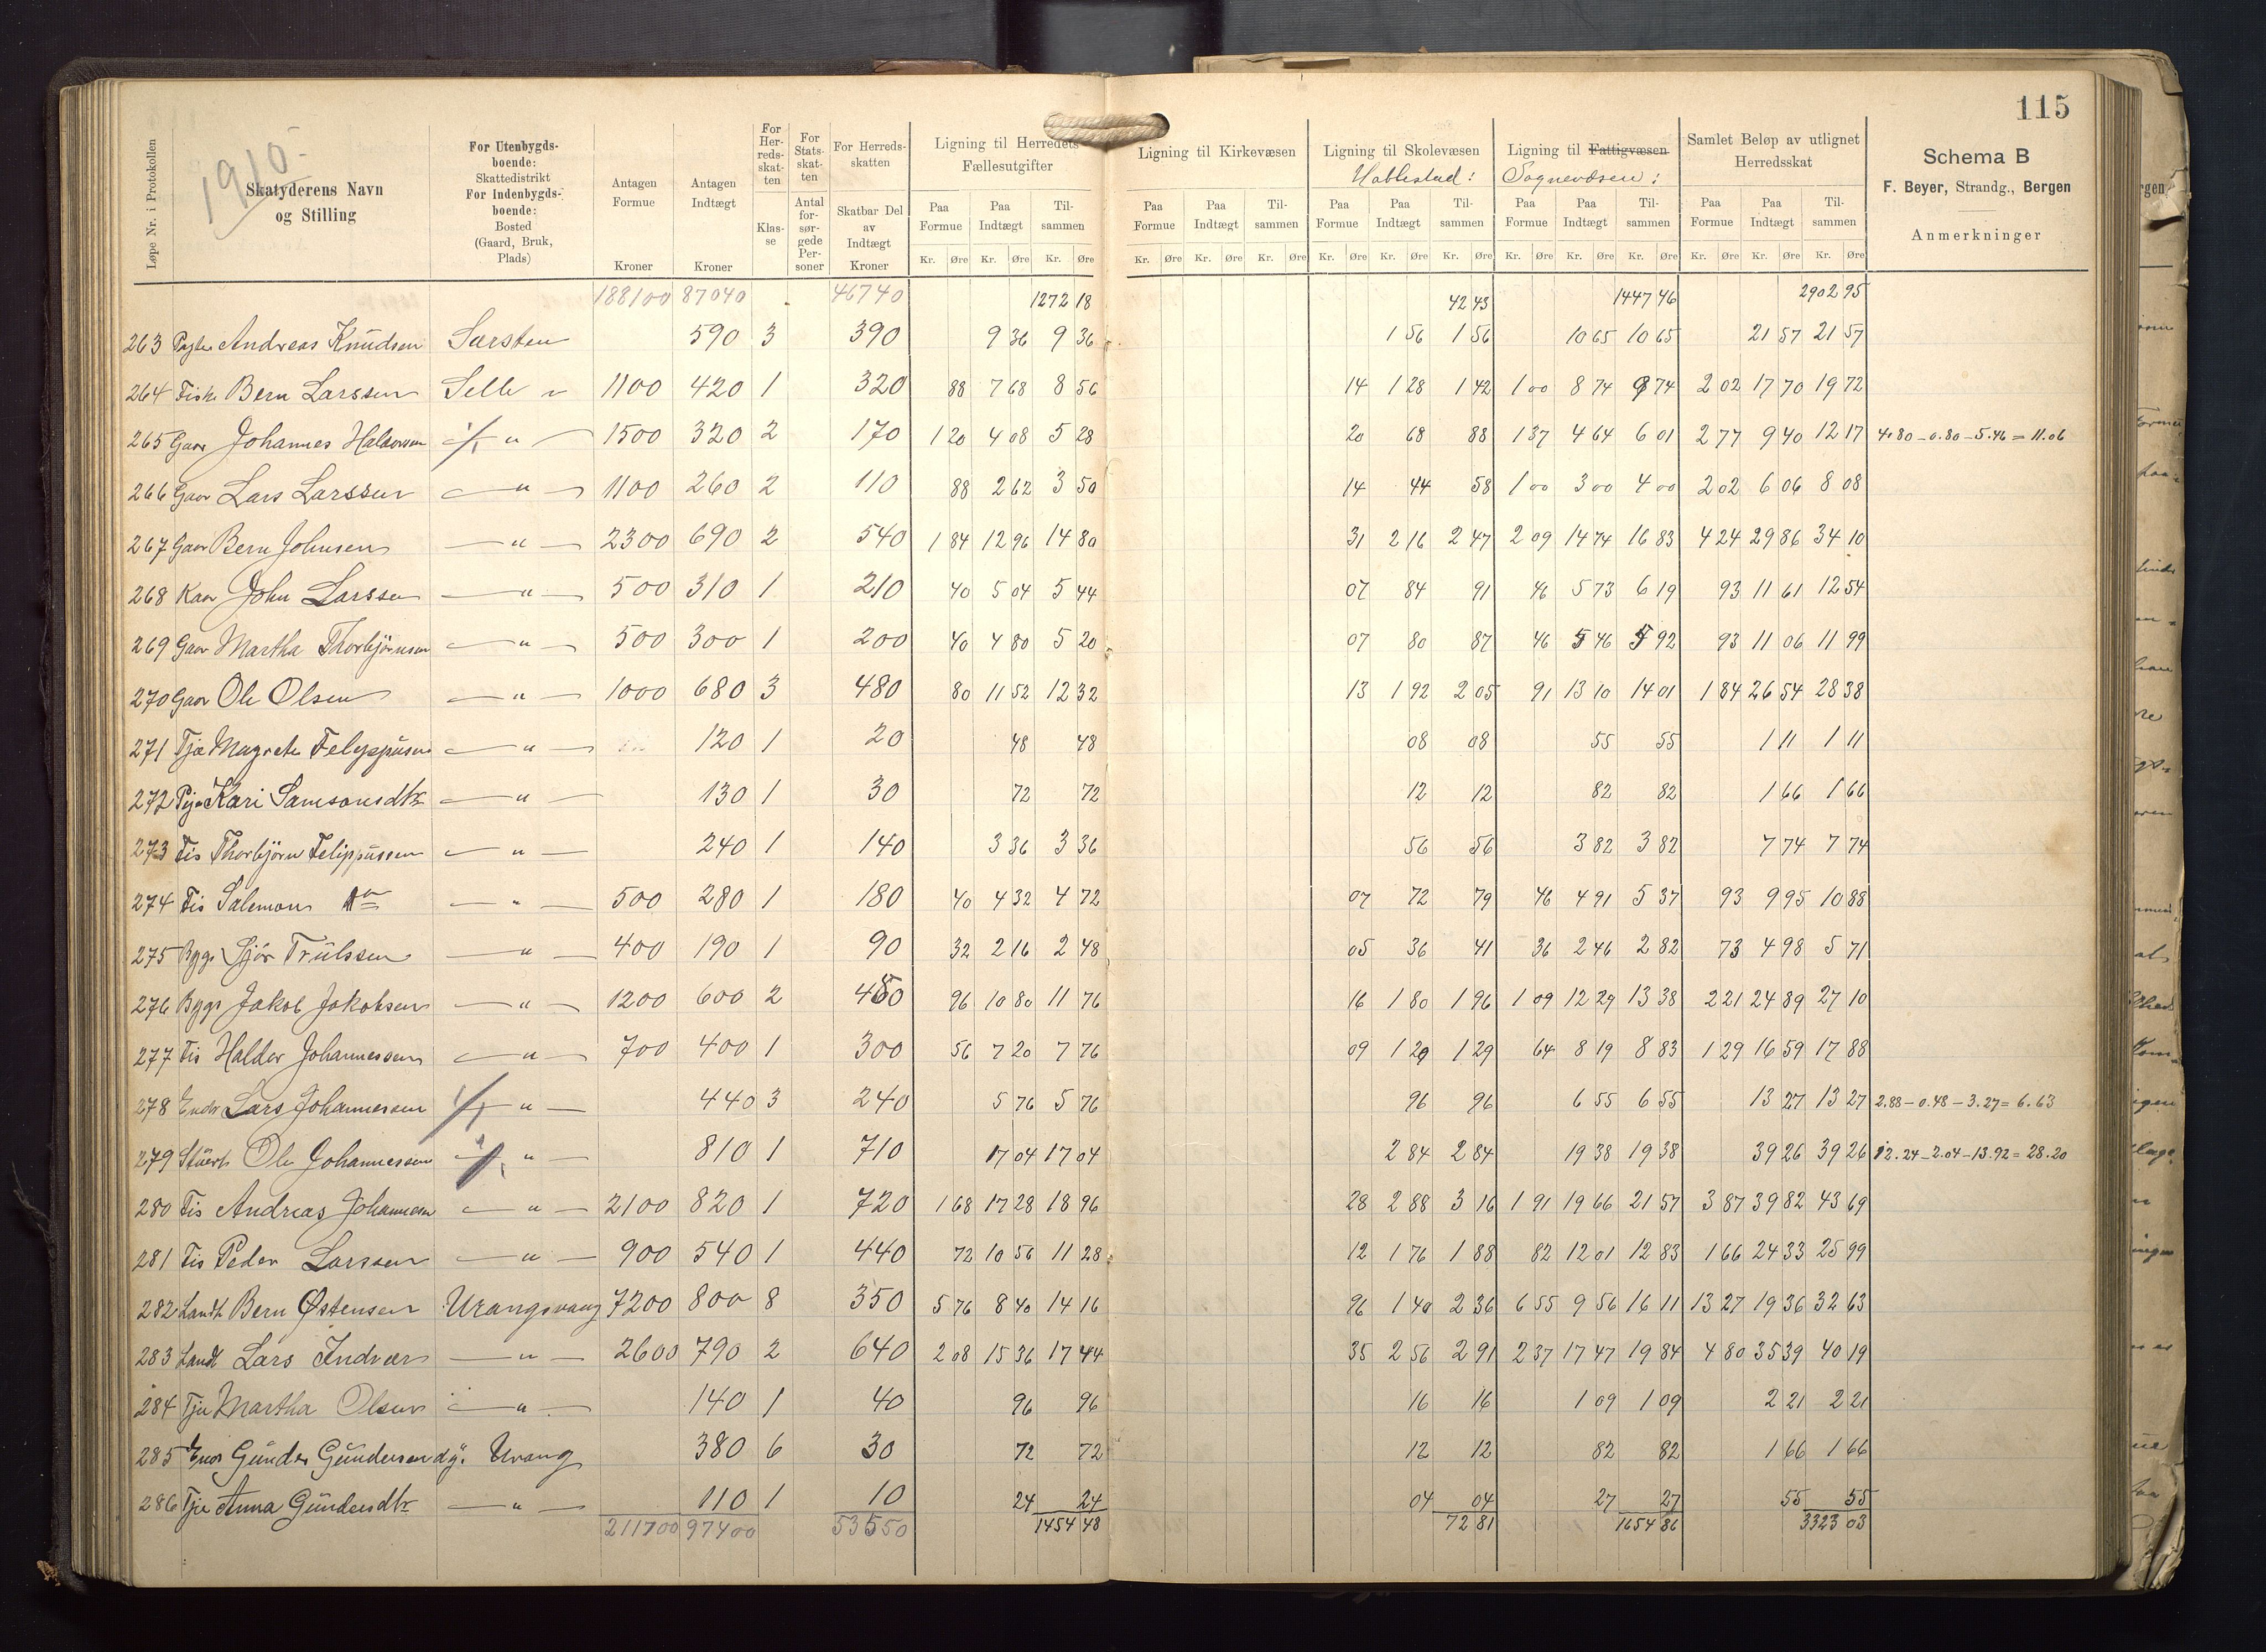 115
1910
Løpe Nr. i Protokollen
Skatyderens Navn og Stilling
For Utenbygds-boende: Skattedistrikt For Indenbygds-boende: Bosted (Gaard, Bruk, Plads)
Antagen Formue Kroner
Antagen Indtægt Kroner
For Herreds-skatten Klasse
For Stats-skatten Antal forsørgede Personer
For Herreds-skatten Skatbar Del av Indtægt Kroner
Ligning til Herredets Fællesutgifter
Ligning til Kirkevæsen
Ligning til Skolevæsen
Ligning til Fattigvæsen
Sognevæsen:
Samlet Beløp av utlignet Herredsskat
Paa Formue Paa Indtægt Tilsammen
Kr. Øre Kr. Øre Kr. Øre
Schema B
F. Beyer, Strandg., Bergen
Anmerkninger
188100 87040 46740 1272 18 42 43 1447 46 2902 95
263 Andreas Knudsen Sarsten 590 3 390 9 36 9 36 1 56 1 56 10 65 10 65 21 57 21 57
264 Fisk Bern Larssen Selle 1100 420 1 320 88 7 68 8 56 14 1 28 1 42 1 00 8 74 9 74 2 02 17 70 19 72
265 Gaar Johannes Haldorsen 1/1 " 1500 320 2 170 1 20 4 08 5 28 20 68 88 1 37 4 64 6 01 2 77 9 40 12 17 4.80 - 0.80 - 5.46 = 11.06
266 Gaar Lars Larssen " 1100 260 2 110 88 2 62 3 50 14 44 58 1 00 3 00 4 00 2 02 6 06 8 08
267 Gaar Bern Johnsen " 2300 690 2 540 1 84 12 96 14 80 31 2 16 2 47 2 09 14 74 16 83 4 24 29 86 34 10
268 Kaar John Larssen " 500 310 1 210 40 5 04 5 44 07 84 91 46 5 73 6 19 93 11 61 12 54
269 Gaar Martha Thorbjörnsen " 500 300 1 200 40 4 80 5 20 07 80 87 46 5 46 5 92 93 11 06 11 99
270 Gaar Ole Olsen " 1000 680 3 480 80 11 52 12 32 13 1 92 2 05 91 13 10 14 01 1 84 26 54 28 38
271 Tje Magrete Felippusen " 120 1 20 48 48 08 08 55 55 1 11 1 11
272 Kari Samsonsdtr " 130 1 30 72 72 12 12 82 82 1 66 1 66
273 Fis Thorbjörn Felippussen " 240 1 140 3 36 3 36 56 56 3 82 3 82 7 74 7 74
274 Fis Salemon do " 500 280 1 180 40 4 32 4 72 07 72 79 46 4 91 5 37 93 9 95 10 88
275 Bygs Sjur Trulssen " 400 190 1 90 32 2 16 2 48 05 36 41 36 2 46 2 82 73 4 98 5 71
276 Bygs Jakob Jakobsen " 1200 600 2 450 96 10 80 11 76 16 1 80 1 96 1 09 12 29 13 38 2 21 24 89 27 10
277 Fis Haldor Johannessen " 700 400 1 300 56 7 20 7 76 09 1 20 1 29 64 8 19 8 83 1 29 16 59 17 88
278 Lars Johannessen 1/1 " 440 3 240 5 76 5 76 96 96 6 55 6 55 13 27 13 27 2.88 - 0.48 - 3.27 = 6.63
279 Stuert Ole Johannessen " 810 1 710 17 04 17 04 2 84 2 84 19 38 19 38 39 26 39 26 12.24 - 2.04 - 13.92 = 28.20
280 Fis Andreas Johannesen " 2100 820 1 720 1 68 17 28 18 96 28 2 88 3 16 1 91 19 66 21 57 3 87 39 82 43 69
281 Fis Peder Larssen " 900 540 1 440 72 10 56 11 28 12 1 76 1 88 82 12 01 12 83 1 66 24 33 25 99
282 Landh Bern Østensen Urangsvaag 7200 800 8 350 5 76 8 40 14 16 96 1 40 2 36 6 55 9 56 16 11 13 27 19 36 32 63
283 Landh Lars Indvær " 2600 790 2 640 2 08 15 36 17 44 35 2 56 2 91 2 37 17 47 19 84 4 80 35 39 40 19
284 Tje Martha Olsen " 140 1 40 96 96 16 16 1 09 1 09 2 21 2 21
285 Gunder Gundersen Urang 380 6 30 72 72 12 12 82 82 1 66 1 66
286 Tje Anna Gundersdtr " 110 1 10 24 24 04 04 27 27 55 55
211700 97400 53550 1454 48 72 81 1654 86 3323 03